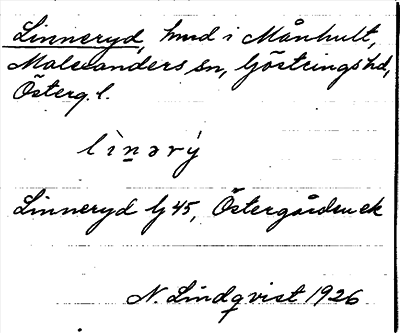 Linneryd, hmd i Månhult,
Malexanders sn, Göstrings hd,
Österg. l.
lìnərý
Linneryd lj 45, Östergården ek
N. Lindqvist 1926